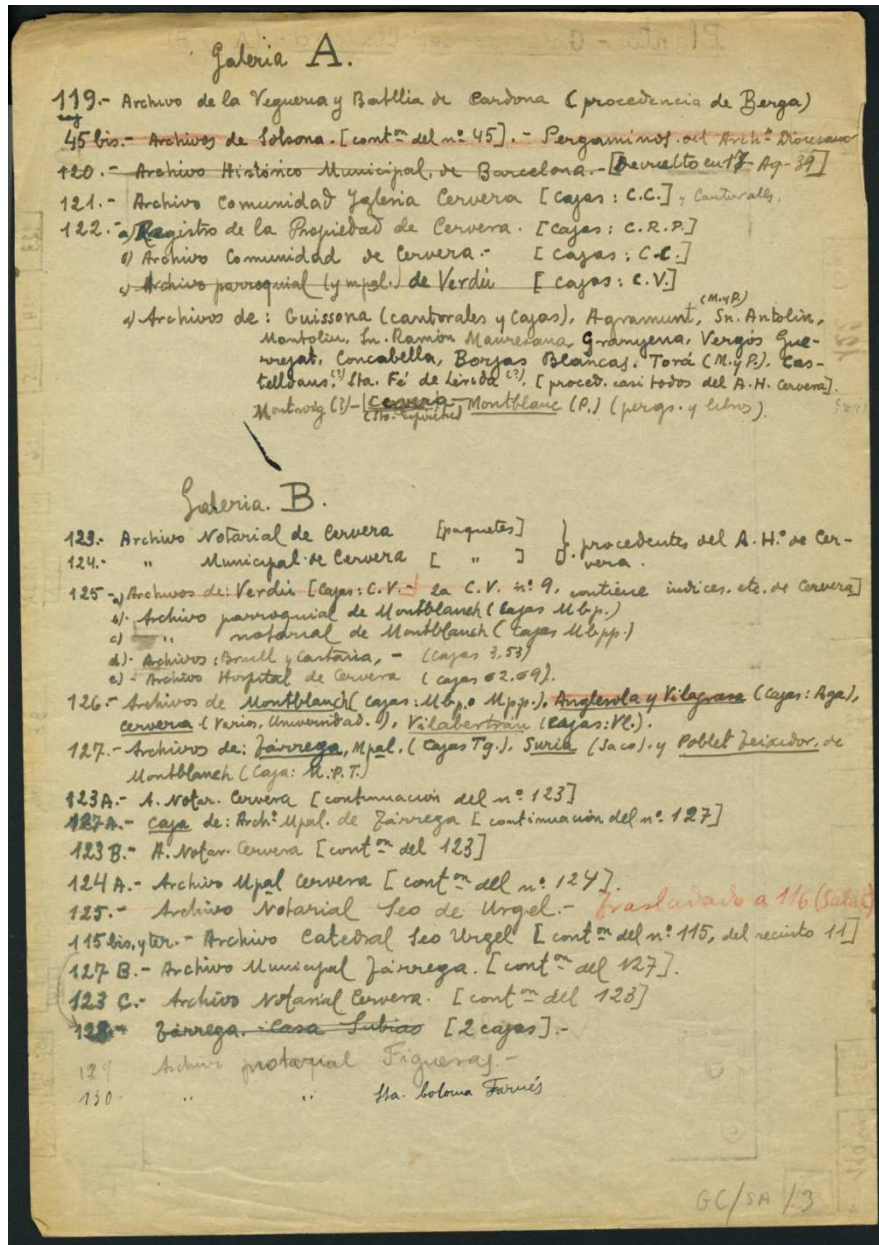 Galeria A.
119.- Archivo de la Vegueria y Batllia de Cardona (procedencia de Berga)
45 bis.- Archivos de Solsona. [conton del nº 45].- Pergaminos del Archº Diocesano
120.- Archivo Histórico Municipal, de Barcelona.- [Devuelto en 17- Ag-39]
121.- Archivo Comunidad Yglesia Cervera [Cajas: C.C.], Cantorales.
122.- a) Registro de la Propiedad de Cervera. [Cajas: C.R.P.]
b) Archivo Comunidad de Cervera.- [Cajas: C.C.]
c) Archivo parroquial (y mpal.) de Verdú [Cajas: C.V.]
d) Archivos de: Guissona (cantorales y Cajas), Agramunt, (M. y P.) Sn. Antolin,
Montoliu, Sn. Ramón Manresana, Granyena, Vergós Gue-
rrejat, Concabella, Borjas Blancas, Torá (M. y P.), Cas-
telldans, (?) Sta. Fé de Lérida (?). [proced. casi todos del A.H. Cervera].
(?) - Cervera - Montblanc (P.) (pergs. y libros).
(Sto. Espíritu)
Galeria. B.
123.- Archivo Notarial de Cervera [paquetes] } procedentes del A.H.º de Cer-
124.- " Municipal de Cervera [ " ] } vera.
125.- a) Archivos de: Verdú [Cajas: C.V.- La C.V. nº 9, contiene indices, etc. de Cervera]
b) Archivo parroquial de Montblanch (Cajas Mbp.)
c) " notarial de Montblanch (Cajas Mbpp.)
d).- Archivos: Bruell y Castaria, - (Cajas 3, 53)
e).- Archivo Hospital de Cervera (cajas 62. 69).
126.- Archivos de Montblanch (cajas: Mbp. o Mpp.), Anglesola y Vilagrasa (Cajas: Aga),
Cervera (Varios, Universidad.), Vilabertrán (Cajas: Vl.).
127.- Archivos de: Tárrega, Mpal. (Cajas Tg.), Suria (Saco), y Poblet Teixidor, de
Montblanch (Caja: M.P.T.)
123A.- A. Notar. Cervera [continuación del nº 123]
127A.- Caja de: Archº Mpal. de Tárrega [continuación del nº 127]
123 B.- A. Notar. Cervera [conton del 123]
124 A.- Archivo Mpal Cervera [conton del nº 124].
125.- Archivo Notarial Seo de Urgel.- Trasladado a 116 (Sala C)
115 bis, y ter.- Archivo Catedral Seo Urgel [conton del nº 115, del recinto 11]
127 B.- Archivo Municipal Tárrega. [conton del 127].
123 C.- Archivo Notarial Cervera. [conton del 123]
128.- Tárrega. Casa Subias [2 cajas].-
129 Archivo protarial Figueras.-
130. " " Sta. Coloma Farnés
GC/SA /3